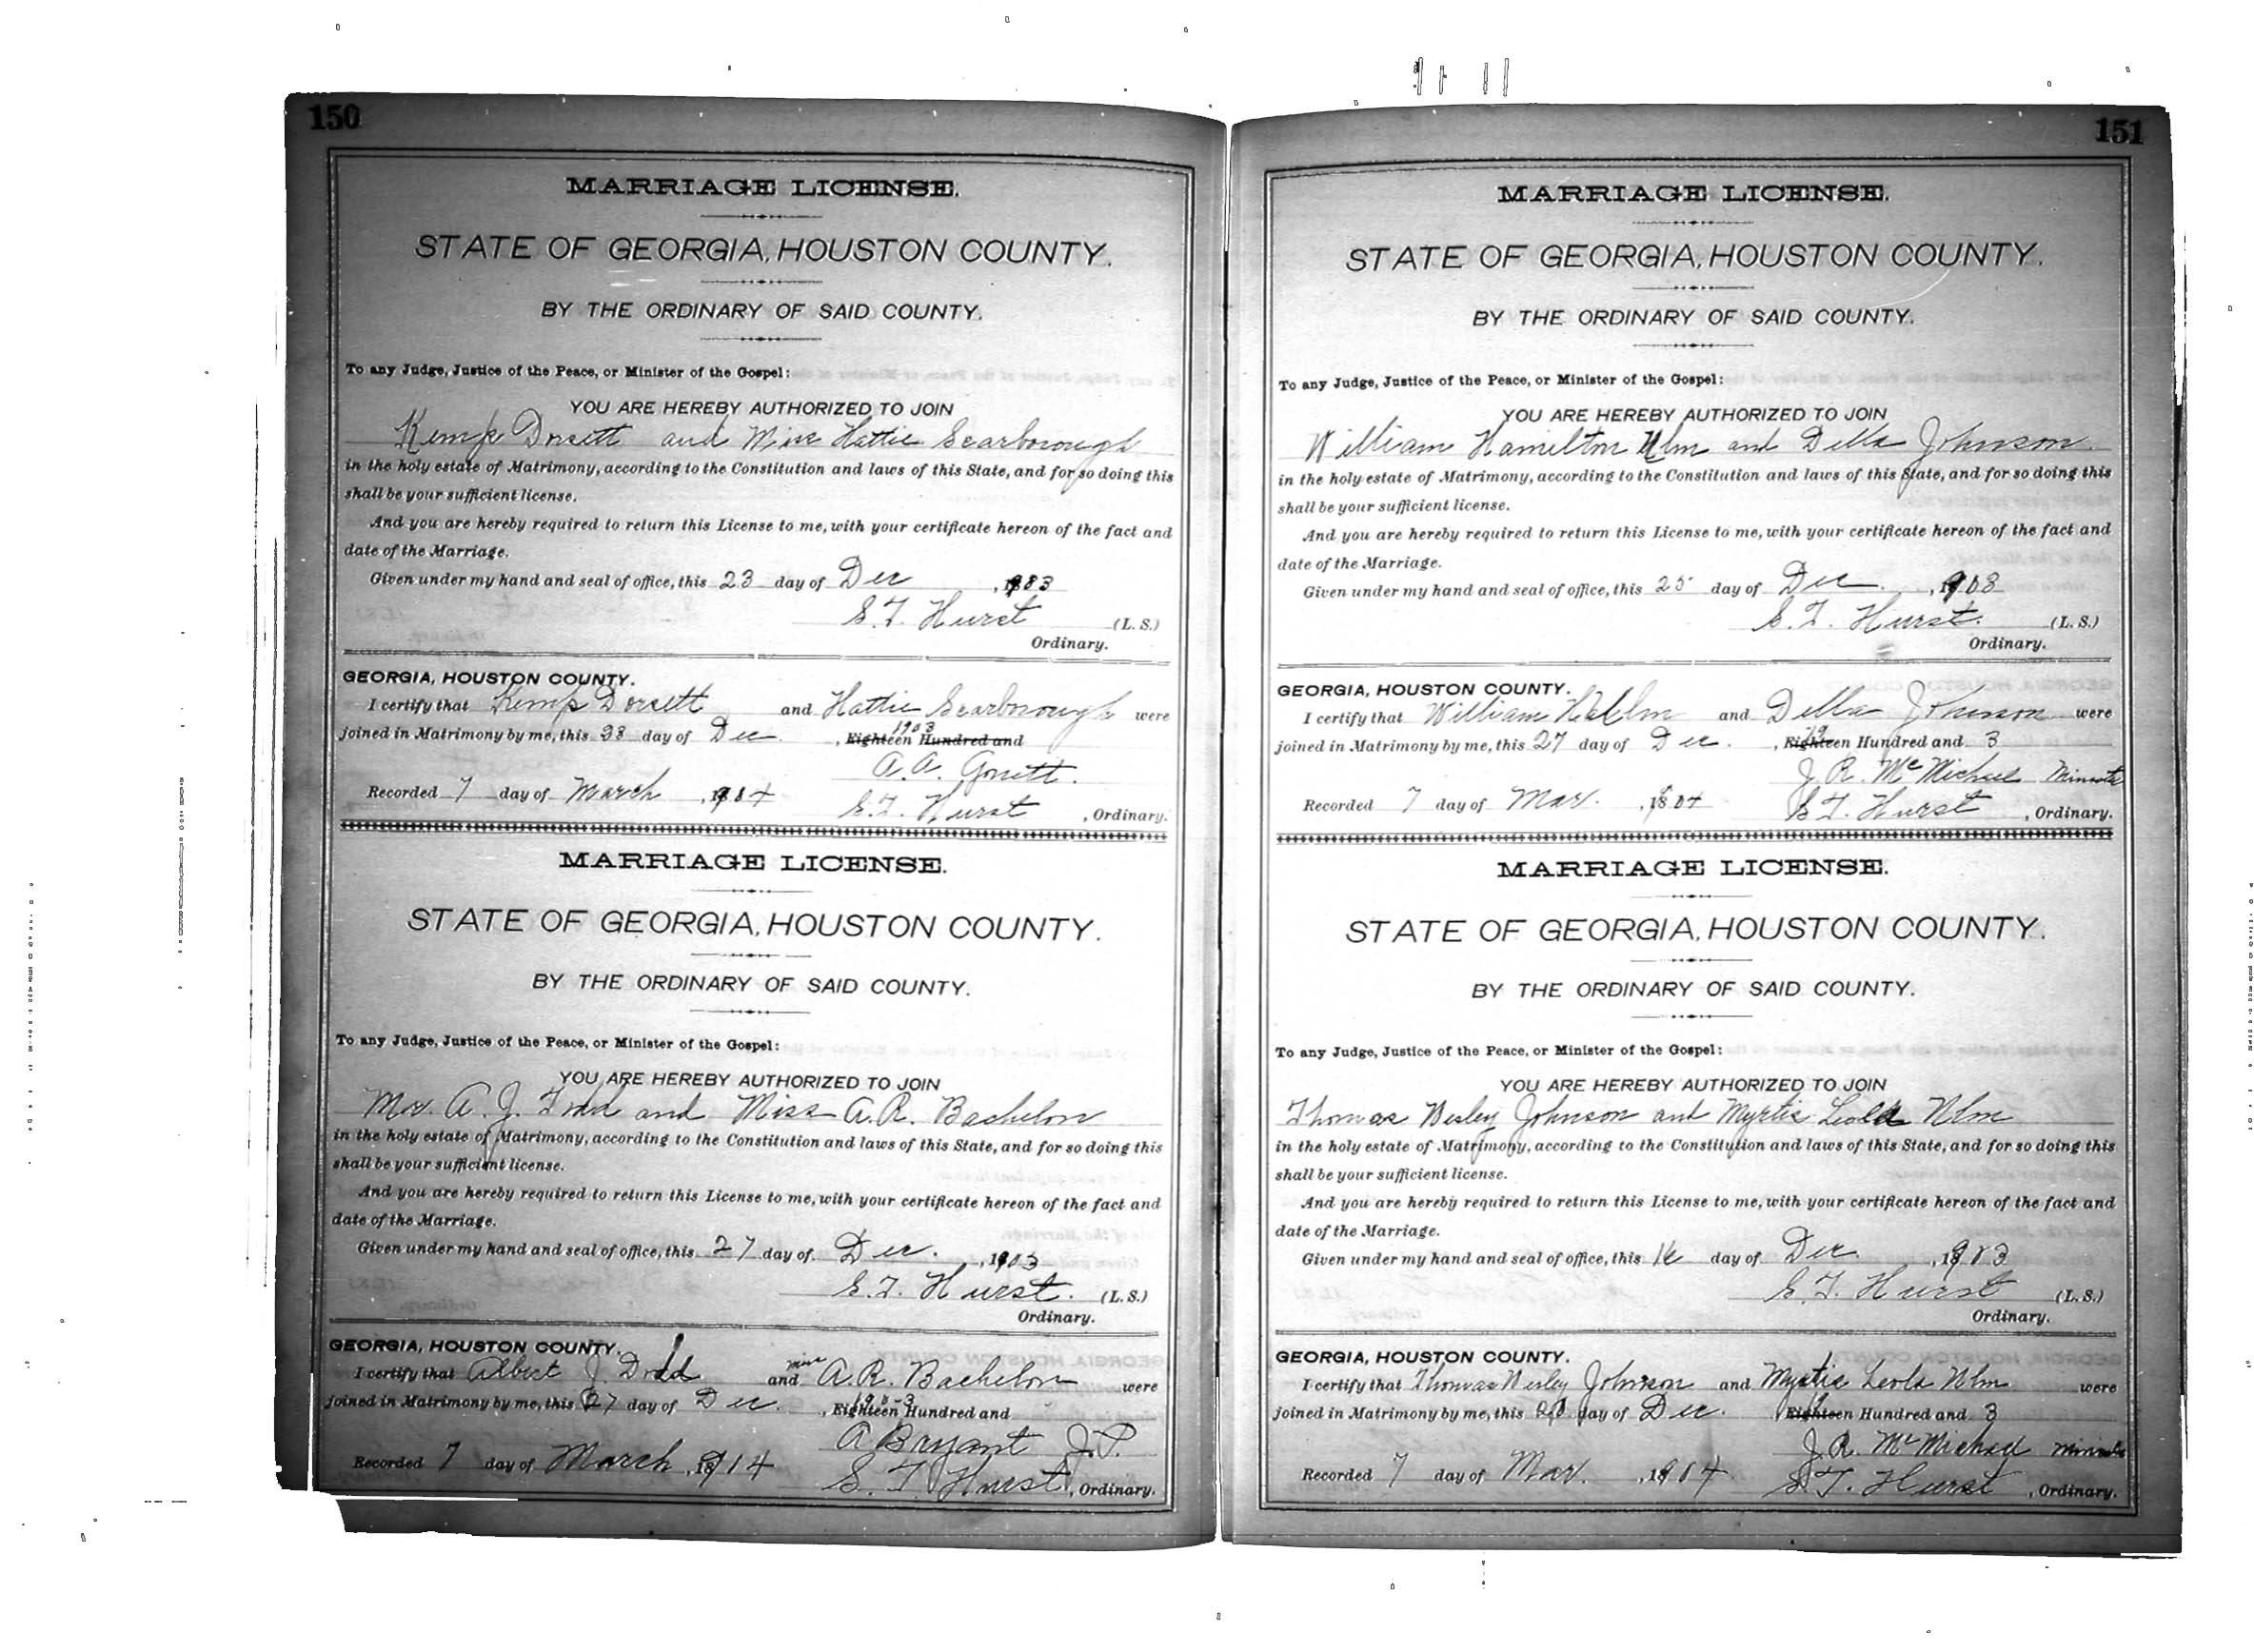 150
MARRIAGE LICENSE.
STATE OF GEORGIA, HOUSTON COUNTY.
BY THE ORDINARY OF SAID COUNTY.
To any Judge, Justice of the Peace, or Minister of the Gospel:
YOU ARE HEREBY AUTHORIZED TO JOIN
Kemp Dorsett and Miss Hattie Scarborough
in the holy estate of Matrimony, according to the Constitution and laws of this State, and for so doing this
shall be your sufficient license.
And you are hereby required to return this License to me, with your certificate hereon of the fact and
date of the Marriage.
Given under my hand and seal of office, this 23 day of Dec , 1903
S. T. Hurst (L. S.)
Ordinary.
GEORGIA, HOUSTON COUNTY.
I certify that Kemp Dorsett and Hattie Scarborough were
joined in Matrimony by me, this day of Dec. , 1903 Eighteen Hundred and
A. A.
Recorded 7 day of March , 1904 S. T. Hurst , Ordinary.
MARRIAGE LICENSE.
STATE OF GEORGIA, HOUSTON COUNTY.
BY THE ORDINARY OF SAID COUNTY.
To any Judge, Justice of the Peace, or Minister of the Gospel:
YOU ARE HEREBY AUTHORIZED TO JOIN
Mr. A. J. and Miss A. R. Bachelor
in the holy estate of Matrimony, according to the Constitution and laws of this State, and for so doing this
shall be your sufficient license.
And you are hereby required to return this License to me, with your certificate hereon of the fact and
date of the Marriage.
Given under my hand and seal of office, this 27 day of Dec. , 1903
S. T. Hurst. (L. S.)
Ordinary.
GEORGIA, HOUSTON COUNTY.
I certify that Albert J. Dodd and Miss A. R. Bachelor were
joined in Matrimony by me, this 27 day of Dec. , 1903 Eighteen Hundred and
A Bryant J. P.
Recorded 7 day of March , 1914 S. T. Hurst , Ordinary.
151
MARRIAGE LICENSE.
STATE OF GEORGIA, HOUSTON COUNTY.
BY THE ORDINARY OF SAID COUNTY.
To any Judge, Justice of the Peace, or Minister of the Gospel:
YOU ARE HEREBY AUTHORIZED TO JOIN
William Hamilton Ulm and Della Johnson
in the holy estate of Matrimony, according to the Constitution and laws of this State, and for so doing this
shall be your sufficient license.
And you are hereby required to return this License to me, with your certificate hereon of the fact and
date of the Marriage.
Given under my hand and seal of office, this 25 day of Dec. , 1903
S. T. Hurst. (L. S.)
Ordinary.
GEORGIA, HOUSTON COUNTY.
I certify that William H Ulm and Della Johnson were
joined in Matrimony by me, this 27 day of Dec. , 19 Eighteen Hundred and 3
J. R. McMichael Minister
Recorded 7 day of Mar. , 1904 S. T. Hurst , Ordinary.
MARRIAGE LICENSE.
STATE OF GEORGIA, HOUSTON COUNTY.
BY THE ORDINARY OF SAID COUNTY.
To any Judge, Justice of the Peace, or Minister of the Gospel:
YOU ARE HEREBY AUTHORIZED TO JOIN
Thomas Wesley Johnson and Myrtis Leola Ulm
in the holy estate of Matrimony, according to the Constitution and laws of this State, and for so doing this
shall be your sufficient license.
And you are hereby required to return this License to me, with your certificate hereon of the fact and
date of the Marriage.
Given under my hand and seal of office, this 16 day of Dec. , 1903
S. T. Hurst (L. S.)
Ordinary.
GEORGIA, HOUSTON COUNTY.
I certify that Thomas Wesley Johnson and Myrtis Leola Ulm were
joined in Matrimony by me, this day of Dec. , 19 Eighteen Hundred and 3
J. R. McMichael Minister
Recorded 7 day of Mar. , 1904 S. T. Hurst , Ordinary.